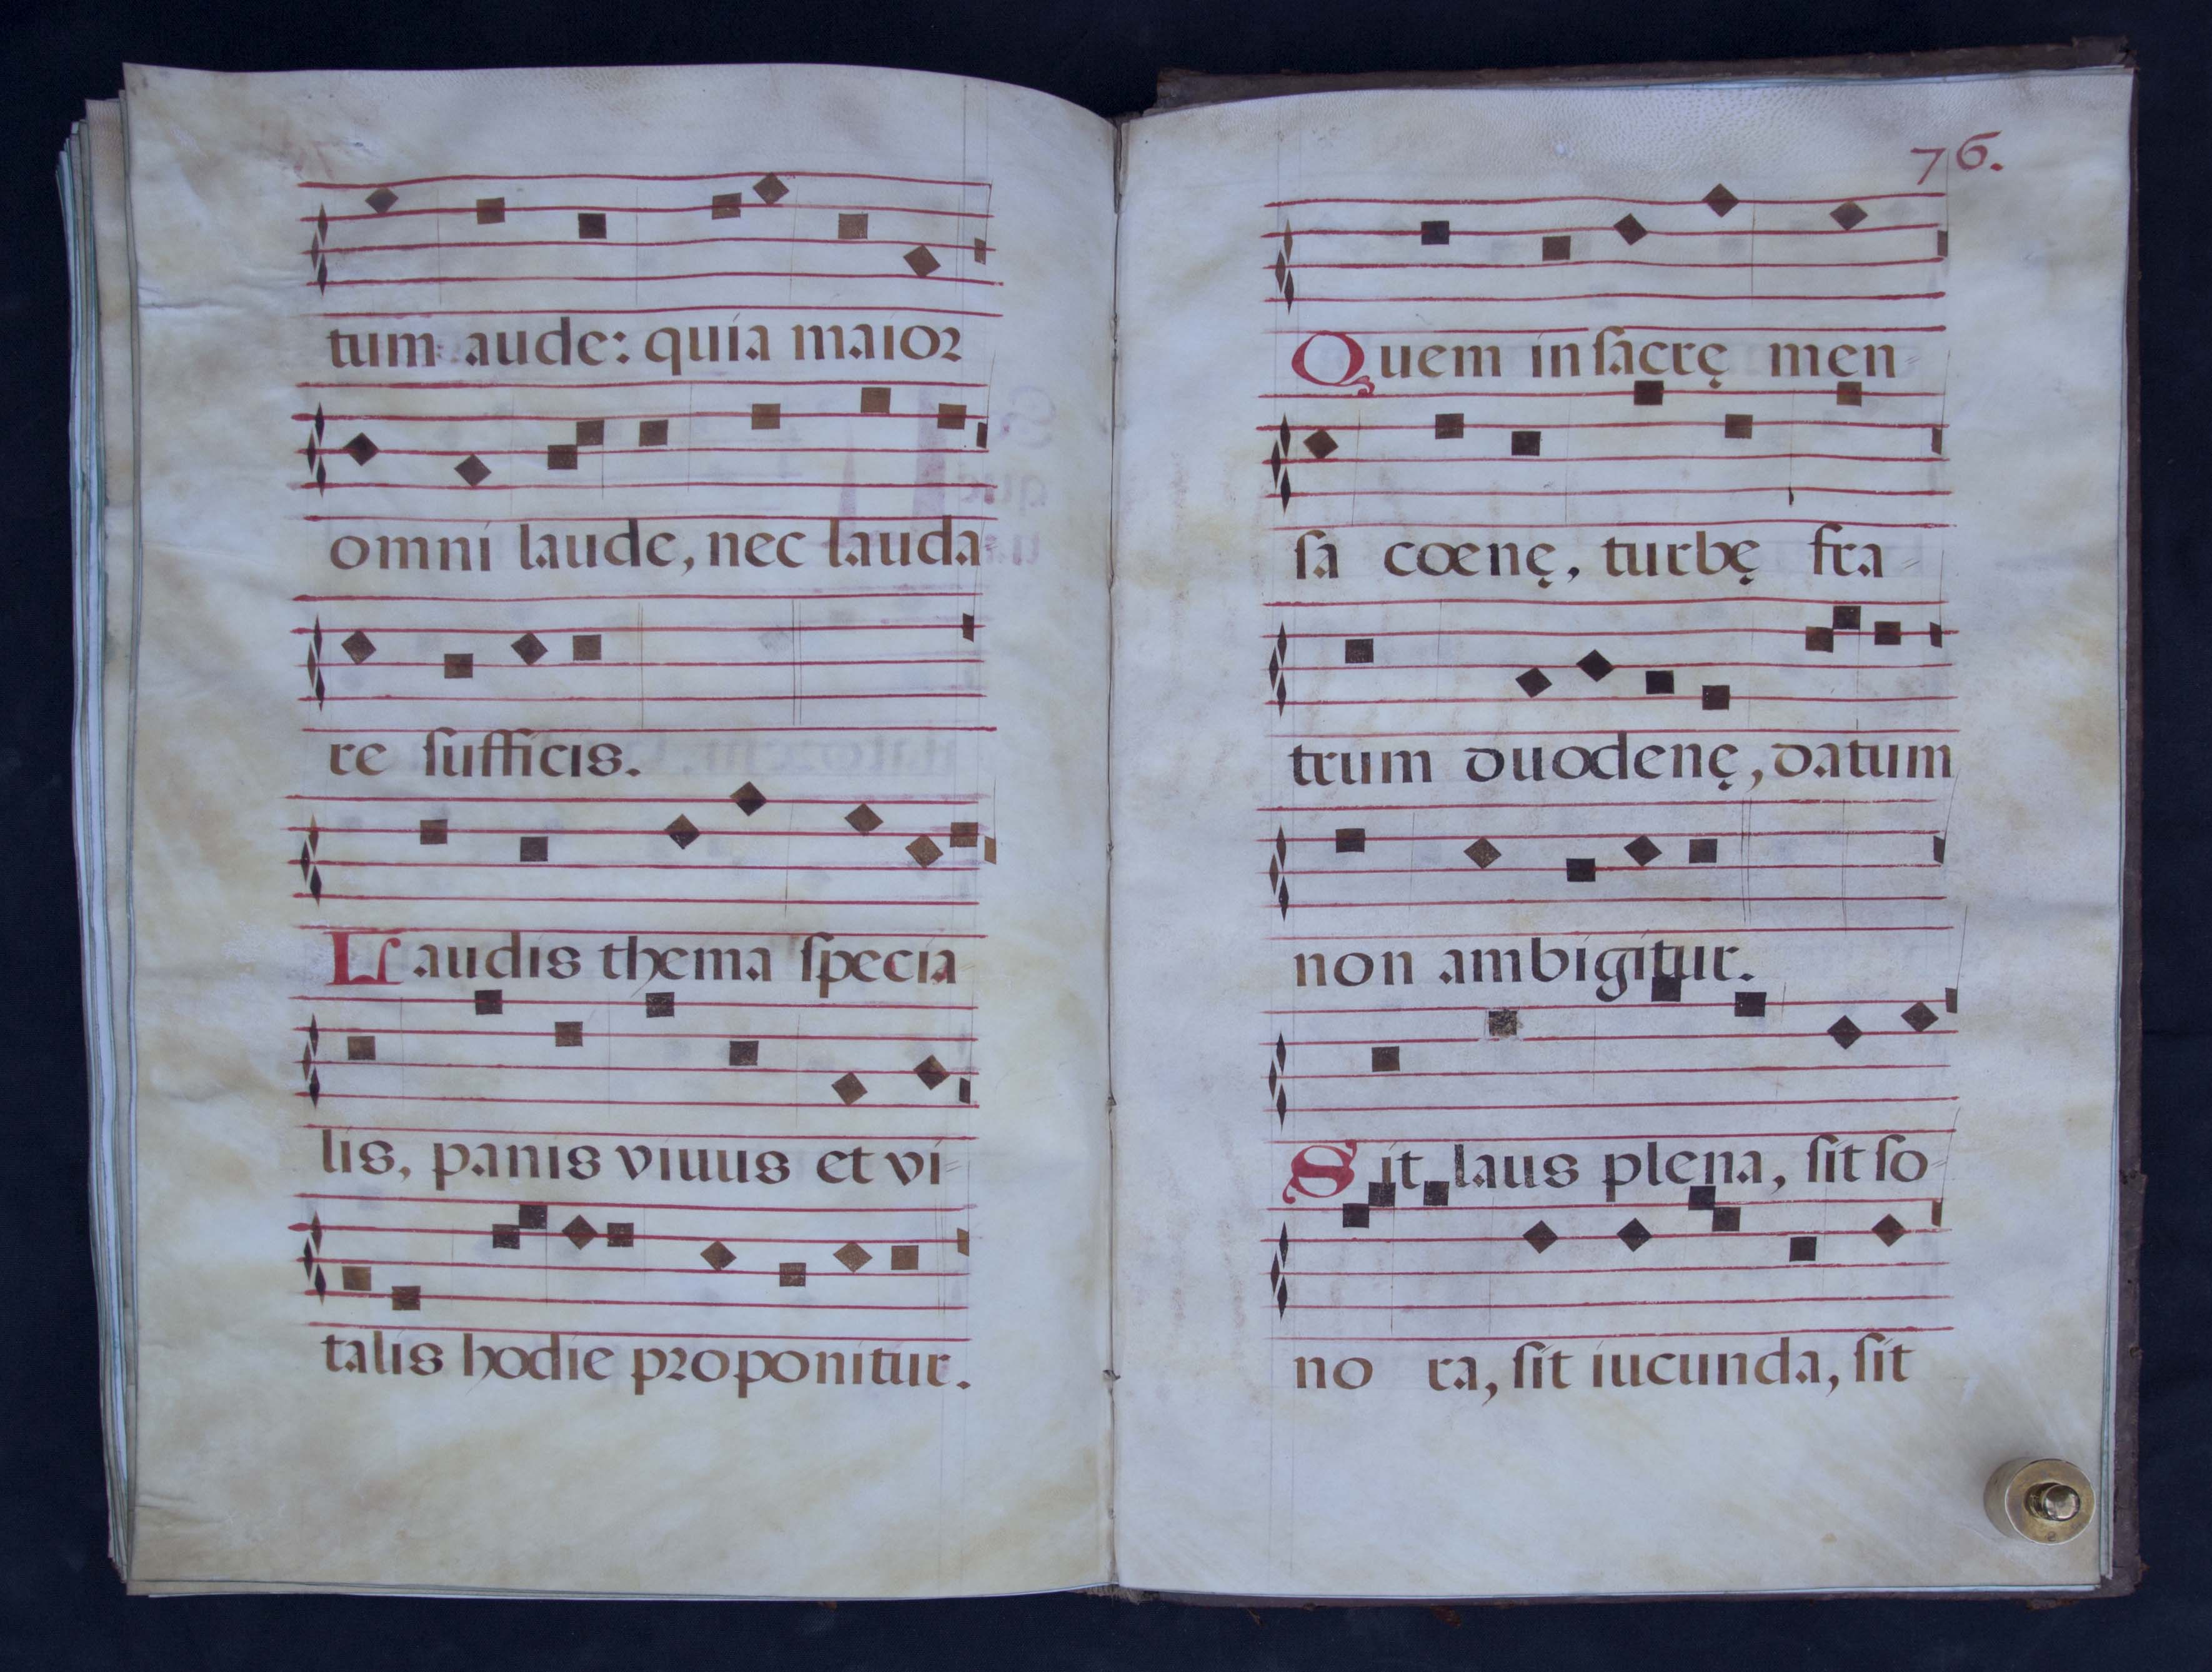 tum aude: quia maior
omni laude, nec lauda-
re ſufficis.
Laudis thema ſpecia
lis, panis viuus et vi-
talis hodie proponitur.
76.
Quem in ſacrę men-
ſa cœnę, turbę fra-
trum duodenę, datum
non ambigitur.
Sit laus plena, ſit ſo-
no ra, ſit iucunda, ſit